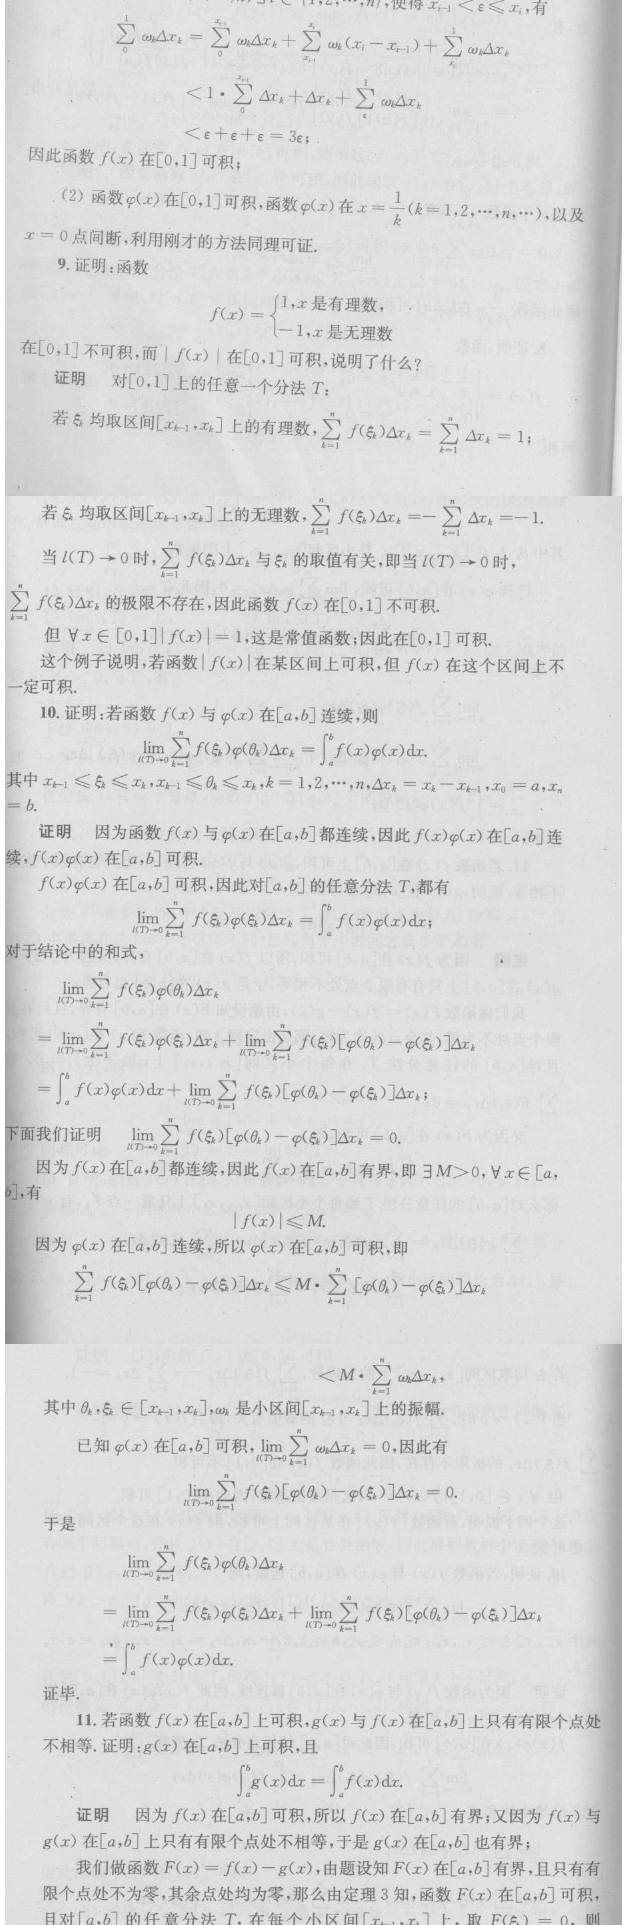 使得 x_{i-1} < ε ≤ x_i,有
\sum_{0}^{1} ω_kΔx_k = \sum_{0}^{x_{i-1}} ω_kΔx_k + \sum_{x_{i-1}}^{x_i} ω_k(x_i - x_{i-1}) + \sum_{x_i}^{1} ω_kΔx_k
< 1 · \sum_{0}^{x_{i-1}} Δx_k + Δx_k + \sum_{ε}^{1} ω_kΔx_k
< ε + ε + ε = 3ε;
因此函数 f(x) 在[0,1] 可积;
(2) 函数 φ(x) 在[0,1]可积,函数 φ(x) 在 x = \frac{1}{k} (k = 1,2,…,n,…),以及
x = 0 点间断,利用刚才的方法同理可证.
9. 证明:函数
f(x) = { 1,x 是有理数,
-1,x 是无理数
在[0,1] 不可积,而 | f(x) | 在[0,1] 可积,说明了什么?
证明 对[0,1] 上的任意一个分法 T:
若 ξ_k 均取区间[x_{k-1},x_k] 上的有理数, \sum_{k=1}^{n} f(ξ_k)Δx_k = \sum_{k=1}^{n} Δx_k = 1;
若 ξ_k 均取区间[x_{k-1},x_k] 上的无理数, \sum_{k=1}^{n} f(ξ_k)Δx_k = - \sum_{k=1}^{n} Δx_k = -1.
当 l(T) → 0 时, \sum_{k=1}^{n} f(ξ_k)Δx_k 与 ξ_k 的取值有关,即当 l(T) → 0 时,
\sum_{k=1}^{n} f(ξ_k)Δx_k 的极限不存在,因此函数 f(x) 在[0,1] 不可积.
但 ∀ x ∈ [0,1]| f(x)| = 1,这是常值函数;因此在[0,1] 可积.
这个例子说明,若函数| f(x)|在某区间上可积,但 f(x) 在这个区间上不
一定可积.
10. 证明:若函数 f(x) 与 φ(x) 在[a,b] 连续,则
\lim_{l(T)→0} \sum_{k=1}^{n} f(ξ_k)φ(θ_k)Δx_k = \int_{a}^{b} f(x)φ(x)dx.
其中 x_{k-1} ≤ ξ_k ≤ x_k,x_{k-1} ≤ θ_k ≤ x_k,k = 1,2,…,n,Δx_k = x_k - x_{k-1},x_0 = a,x_n
= b.
证明 因为函数 f(x) 与 φ(x) 在[a,b] 都连续,因此 f(x)φ(x) 在[a,b]连
续,f(x)φ(x) 在[a,b] 可积.
f(x)φ(x) 在[a,b] 可积,因此对[a,b] 的任意分法 T,都有
\lim_{l(T)→0} \sum_{k=1}^{n} f(ξ_k)φ(ξ_k)Δx_k = \int_{a}^{b} f(x)φ(x)dx;
对于结论中的和式,
\lim_{l(T)→0} \sum_{k=1}^{n} f(ξ_k)φ(θ_k)Δx_k
= \lim_{l(T)→0} \sum_{k=1}^{n} f(ξ_k)φ(ξ_k)Δx_k + \lim_{l(T)→0} \sum_{k=1}^{n} f(ξ_k)[φ(θ_k) - φ(ξ_k)]Δx_k
= \int_{a}^{b} f(x)φ(x)dx + \lim_{l(T)→0} \sum_{k=1}^{n} f(ξ_k)[φ(θ_k) - φ(ξ_k)]Δx_k;
下面我们证明 \lim_{l(T)→0} \sum_{k=1}^{n} f(ξ_k)[φ(θ_k) - φ(ξ_k)]Δx_k = 0.
因为 f(x) 在[a,b]都连续,因此 f(x) 在[a,b]有界,即 ∃ M > 0, ∀ x ∈ [a,
b],有
| f(x)| ≤ M.
因为 φ(x) 在[a,b] 连续,所以 φ(x) 在[a,b] 可积,即
\sum_{k=1}^{n} f(ξ_k)[φ(θ_k) - φ(ξ_k)]Δx_k ≤ M · \sum_{k=1}^{n} [φ(θ_k) - φ(ξ_k)]Δx_k
< M · \sum_{k=1}^{n} ω_kΔx_k,
其中 θ_k,ξ_k ∈ [x_{k-1},x_k],ω_k 是小区间[x_{k-1},x_k] 上的振幅.
已知 φ(x) 在[a,b] 可积, \lim_{l(T)→0} \sum_{k=1}^{n} ω_kΔx_k = 0,因此有
\lim_{l(T)→0} \sum_{k=1}^{n} f(ξ_k)[φ(θ_k) - φ(ξ_k)]Δx_k = 0.
于是
\lim_{l(T)→0} \sum_{k=1}^{n} f(ξ_k)φ(θ_k)Δx_k
= \lim_{l(T)→0} \sum_{k=1}^{n} f(ξ_k)φ(ξ_k)Δx_k + \lim_{l(T)→0} \sum_{k=1}^{n} f(ξ_k)[φ(θ_k) - φ(ξ_k)]Δx_k
= \int_{a}^{b} f(x)φ(x)dx.
证毕.
11. 若函数 f(x) 在[a,b] 上可积,g(x) 与 f(x) 在[a,b] 上只有有限个点处
不相等. 证明:g(x) 在[a,b] 上可积,且
\int_{a}^{b} g(x)dx = \int_{a}^{b} f(x)dx.
证明 因为 f(x) 在[a,b] 可积,所以 f(x) 在[a,b] 有界;又因为 f(x) 与
g(x) 在[a,b] 上只有有限个点处不相等,于是 g(x) 在[a,b] 也有界;
我们做函数 F(x) = f(x) - g(x),由题设知 F(x) 在[a,b] 有界,且只有有
限个点处不为零,其余点处均为零,那么由定理 3 知,函数 F(x) 在[a,b] 可积,
且对[a,b] 的任意分法 T,在每个小区间[x_{k-1},x_k] 上,取 F(ξ_k) = 0,则